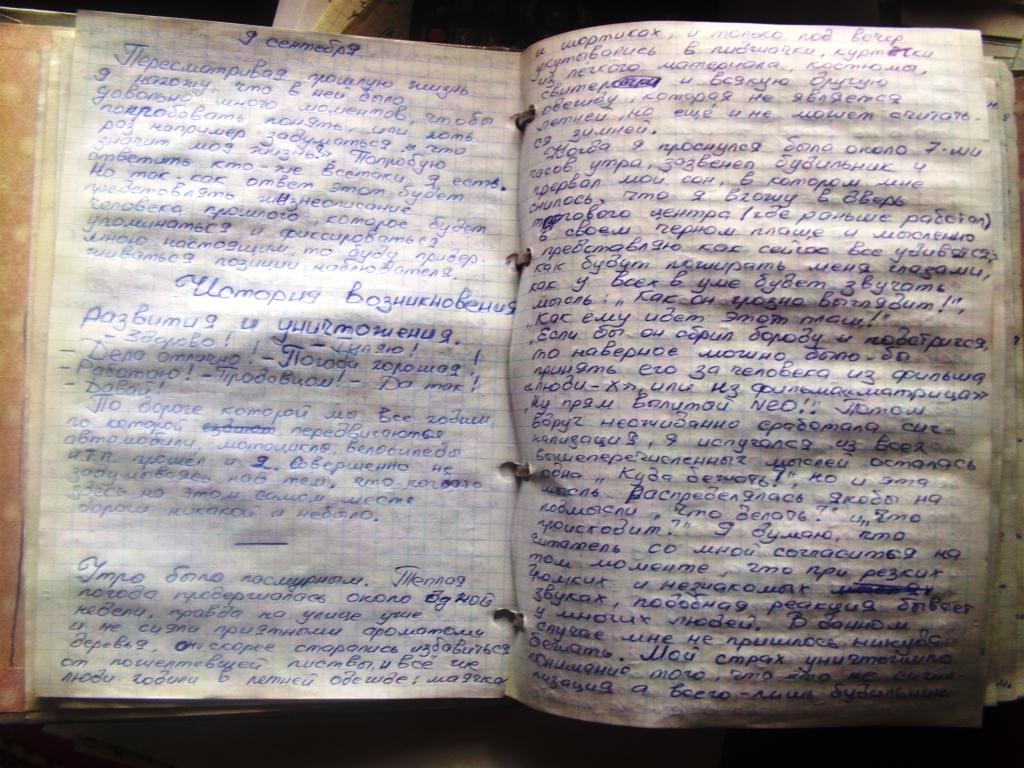 9 сентября
Пересматривая прошлую жизнь
я нахожу, что в ней было
довольно много моментов, чтобы
попробовать понять, или хоть
раз например задуматься "что
значит моя жизнь?" Попробую
ответить кто-же всетаки я есть.
Но так как ответ этот будет
представлять жизнеописание
человека прошлого, которое будет
упоминаться и фиксироваться
мною настоящим, то буду придер-
живаться позиции наблюдателя.
История возникновения
развития и уничтожения.
- Здорово! !
- Дела отлично! - Погода хорошая!
- Работаю! - Продавцом! - Да так!
- Давай!
По дороге которой мы все ходим,
по которой передвигаются
автомобили, мотоциклы, велосипеды
и т.п. прошёл и я. Совершенно не
задумываясь над тем, что когдато
здесь на этом самом месте
дороги никакой и небыло.
Утро было пасмурным. Теплая
погода продержалась около одной
недели, правда на улице уже
и не сияли приятными ароматами
деревья, они скорее старались избавиться
от пожелтевшей листвы, и всё же
люди ходили в летней одежде: маячка
и шортиках, и только под вечер
укутывались в пиджачки, куртки
из легкого материала, костюмы,
свитера и всякую другую
одежду, которая не является
летней, но ещё и не может считать-
ся зимней.
Когда я проснулся было около 7-ми
часов утра, зазвенел будильник и
прервал мой сон, в котором мне
снилось, что я вхожу в дверь
торгового центра (где раньше работал)
в своем черном плаще и мысленно
представляю как сейчас все удивятся,
как будут пожирать меня глазами,
как у всех в уме будет звучать
мысль: "Как он грозно выглядит!",
"Как ему идет этот плащ!"
"Если бы он сбрил бороду и подстригся,
то наверное можно было-бы
принять его за человека из фильма
«люди-х» или из фильма «матрица»
"Ну прям вылитый NEO!! Потом
вдруг неожиданно сработала сиг-
нализация, я испугался из всех
вышеперечисленных мыслей осталась
одна "Куда бежать!", но и эта
мысль распределялась якобы на
подмысли, "Что делать?" и "Что
происходит?" Я думаю, что
читатель со мной согласиться на
том моменте, что при резких
громких и незнакомых
звуках, подобная реакция бывает
у многих людей. В данном
случае мне не пришлось никуда
бежать. Мой страх уничтожило
понимание того, что это не сигна-
лизация а всего-лишь будильник